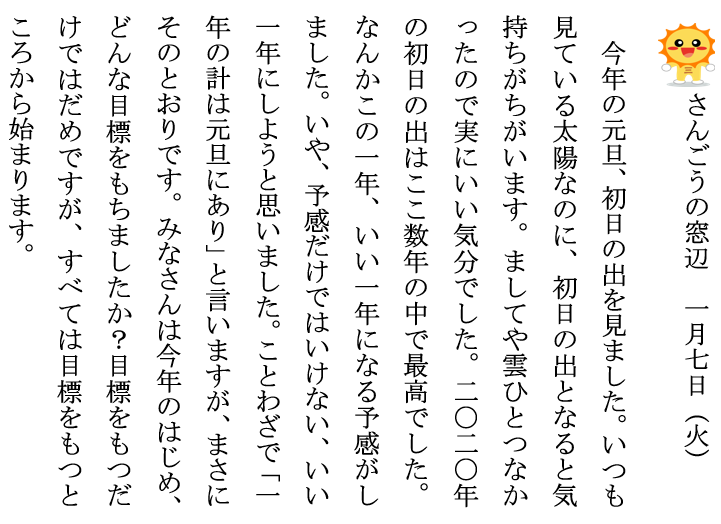 さんごうの窓辺　一月七日（火）
　今年の元旦、初日の出を見ました。いつも
見ている太陽なのに、初日の出となると気
持ちがちがいます。ましてや雲ひとつなか
ったので実にいい気分でした。二〇二〇年
の初日の出はここ数年の中で最高でした。
なんかこの一年、いい一年になる予感がし
ました。いや、予感だけではいけない、いい
一年にしようと思いました。ことわざで「一
年の計は元旦にあり」と言いますが、まさに
そのとおりです。みなさんは今年のはじめ、
どんな目標をもちましたか？目標をもつだ
けではだめですが、すべては目標をもつと
ころから始まります。